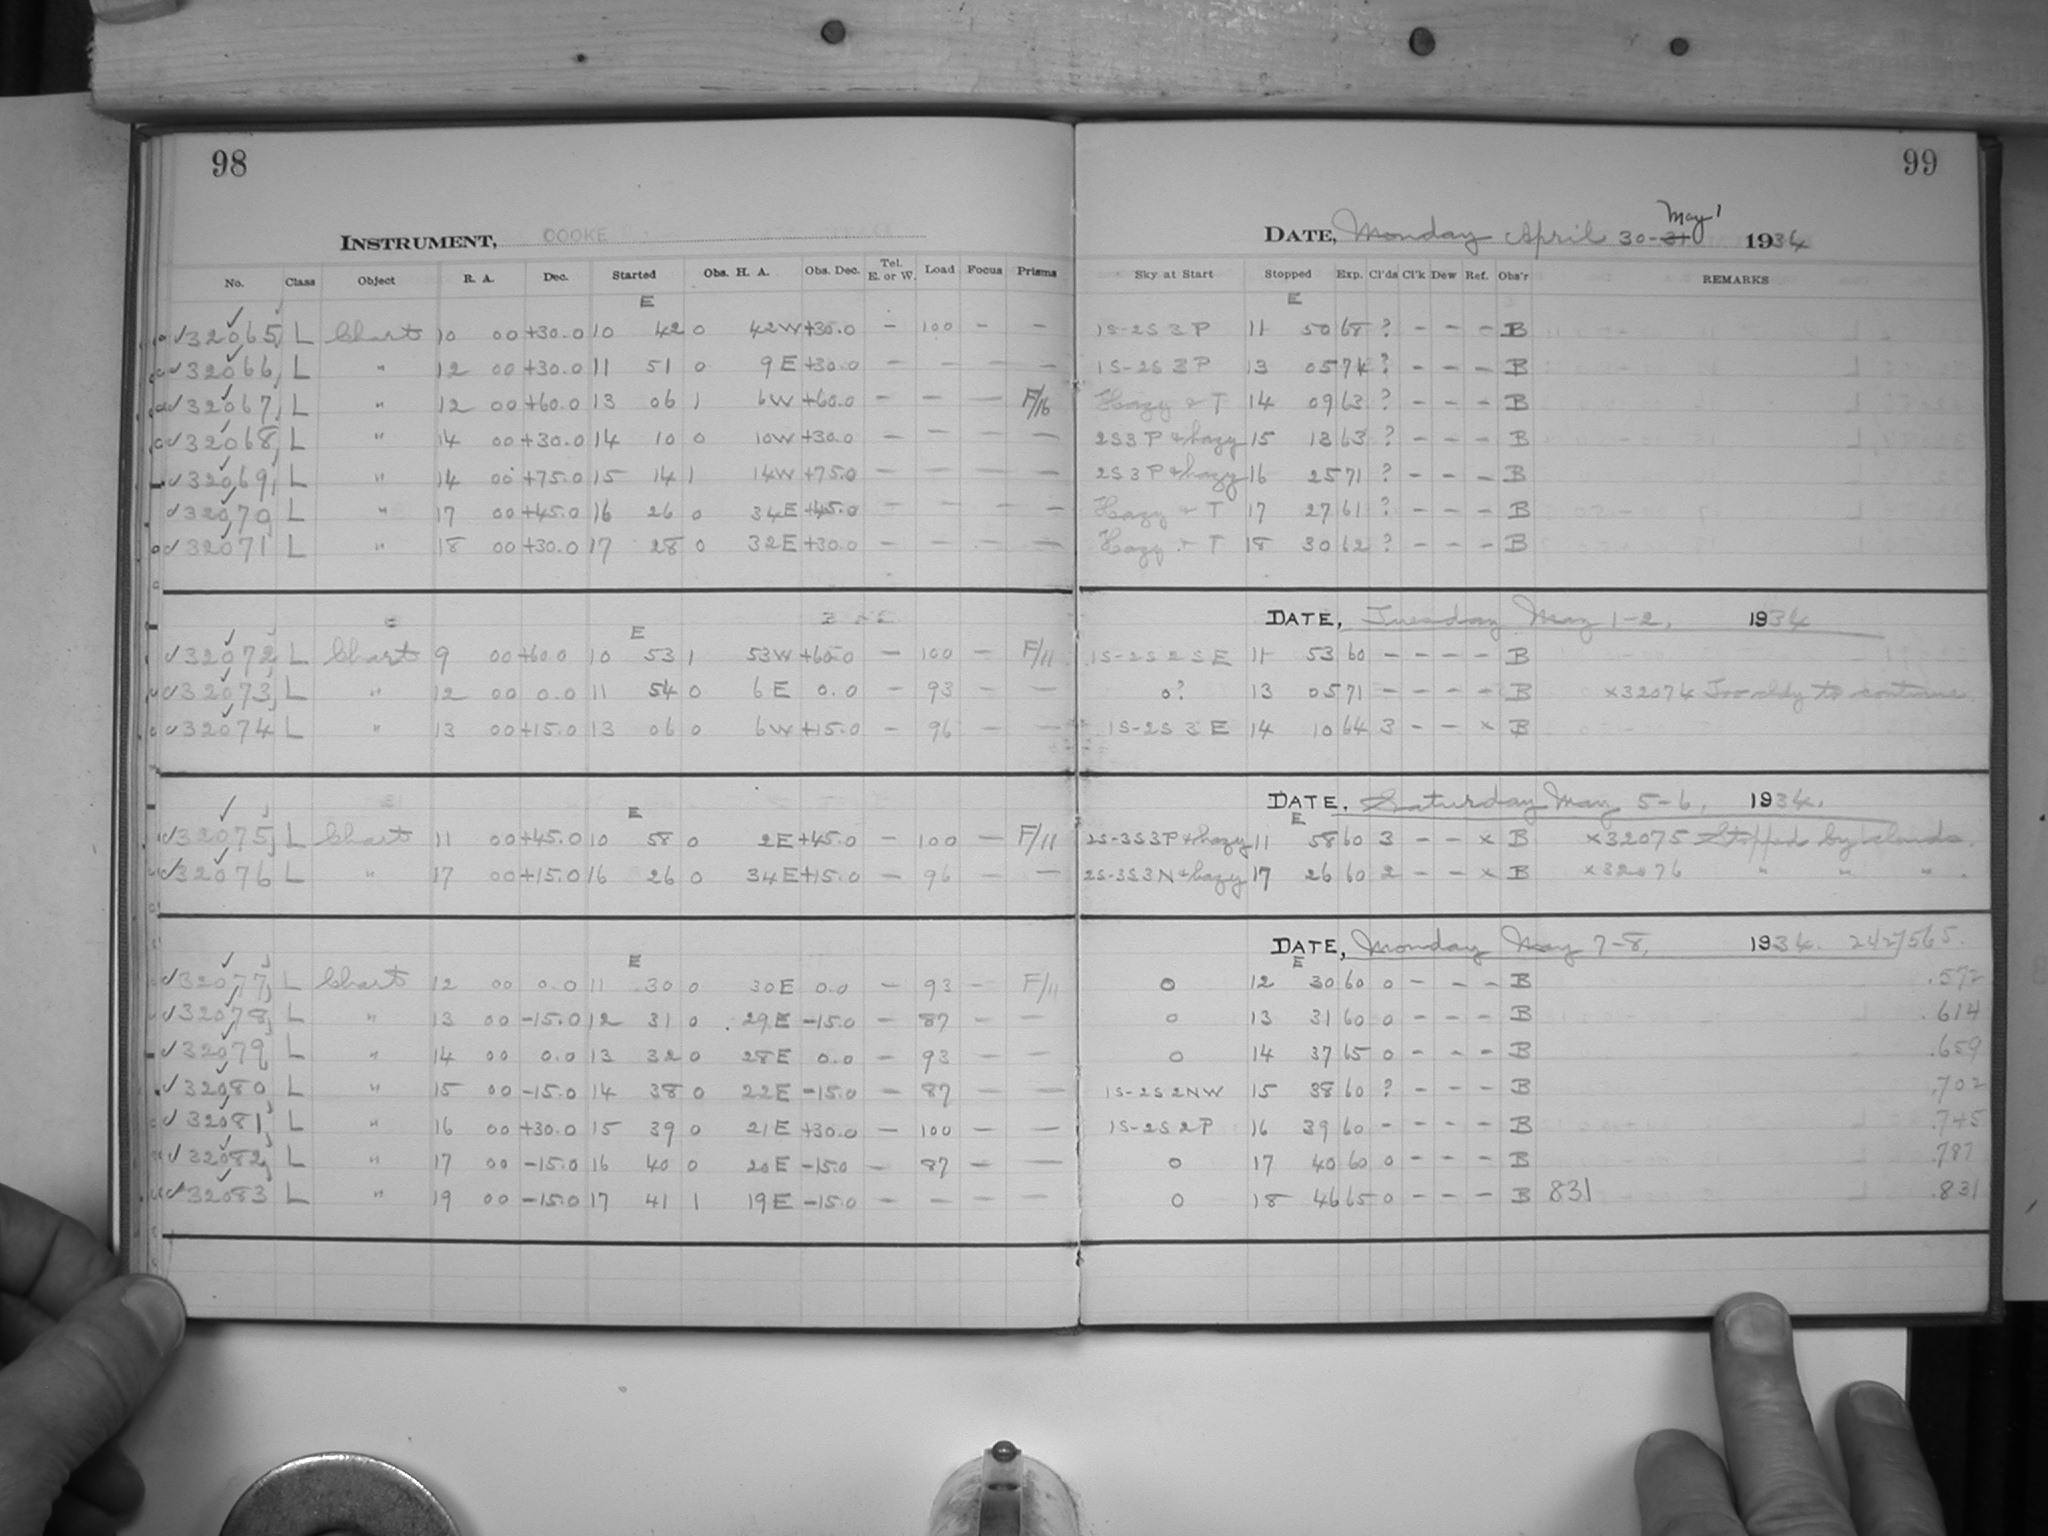 98
99
INSTRUMENT, COOKE
DATE, Monday April 30-31 May 1 1934
No. Class Object R. A. Dec. Started Obs. H. A. Obs. Dec. Tel. E. or W. Load Focus Prisms Sky at Start Stopped Exp. Cl'ds Cl'k Dew Ref. Obs'r REMARKS
E E
✓32065 L Chart 10 00 +30.0 10 42 0 42W +30.0 – 100 – – 1S-2S 3P 11 50 68 ? – – – B
✓32066 L " 12 00 +30.0 11 51 0 9E +30.0 – – – – 1S-2S 3P 13 05 74 ? – – – B
✓32067 L " 12 00 +60.0 13 06 1 6W +60.0 – – – F/16 Hazy & T 14 09 63 ? – – – B
✓32068 L " 14 00 +30.0 14 10 0 10W +30.0 – – – – 2S3P & hazy 15 13 63 ? – – – B
✓32069 L " 14 00 +75.0 15 14 1 14W +75.0 – – – – 2S3P & hazy 16 25 71 ? – – – B
✓32070 L " 17 00 +45.0 16 26 0 34E +45.0 – – – – Hazy & T 17 27 61 ? – – – B
✓32071 L " 18 00 +30.0 17 28 0 32E +30.0 – – – – Hazy & T 18 30 62 ? – – – B
DATE, Tuesday May 1-2, 1934
E
✓32072 L Chart 9 00 +60.0 10 53 1 53W +60.0 – 100 – F/11 1S-2S 2SE 11 53 60 – – – – B
✓32073 L " 12 00 0.0 11 54 0 6E 0.0 – 93 – – 0? 13 05 71 – – – – B ×32074 Too cldy to continue.
✓32074 L " 13 00 +15.0 13 06 0 6W +15.0 – 96 – – 1S-2S 3E 14 10 64 3 – – × B
DATE, Saturday May 5-6, 1934.
E E
✓32075 L Chart 11 00 +45.0 10 58 0 2E +45.0 – 100 – F/11 2S-3S3P & hazy 11 58 60 3 – – × B ×32075 Stopped by clouds.
✓32076 L " 17 00 +15.0 16 26 0 34E +15.0 – 96 – – 2S-3S3N & hazy 17 26 60 2 – – × B ×32076 " " " .
DATE, Monday May 7-8, 1934. 2427565.
E E
✓32077 L Chart 12 00 0.0 11 30 0 30E 0.0 – 93 – F/11 0 12 30 60 0 – – – B .572
✓32078 L " 13 00 -15.0 12 31 0 29E -15.0 – 87 – – 0 13 31 60 0 – – – B .614
✓32079 L " 14 00 0.0 13 32 0 28E 0.0 – 93 – – 0 14 37 65 0 – – – B .659
✓32080 L " 15 00 -15.0 14 38 0 22E -15.0 – 87 – – 1S-2S 2NW 15 38 60 ? – – – B .702
✓32081 L " 16 00 +30.0 15 39 0 21E +30.0 – 100 – – 1S-2S 2P 16 39 60 – – – – B .745
✓32082 L " 17 00 -15.0 16 40 0 20E -15.0 – 87 – – 0 17 40 60 0 – – – B .787
✓32083 L " 19 00 -15.0 17 41 1 19E -15.0 – – – – 0 18 46 65 0 – – – B 831 .831